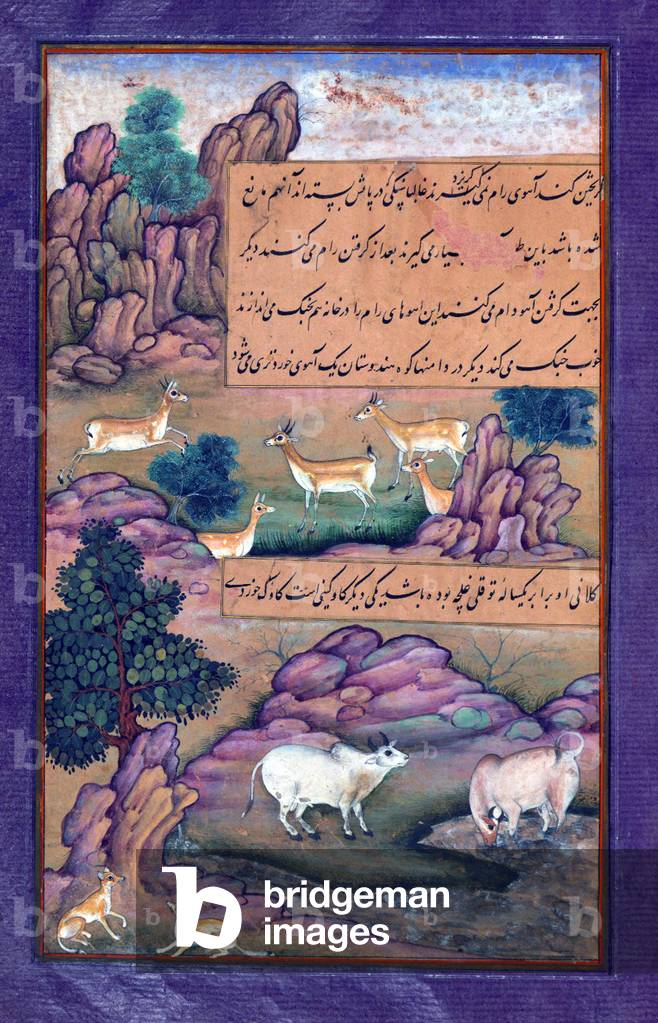 کند آهوی رام نمی گیرند غالبا شکی در پاش بسته اند آنهم مانع
شده باشد باین بسیار می گیرند بعد از گرفتن رام می کنند دیگر
بجهت گرفتن آهو دام می کنند این آهوهای رام را در خانه هم بجنک می اندازند
خوب جنک می کند دیگر در دامنهای کوه هندوستان یک آهوی خوردتری می شود
کلانی او برابر یکساله توقلی غلچه بوده باشد یکی دیگر کاو کینی است
b
bridgeman
images